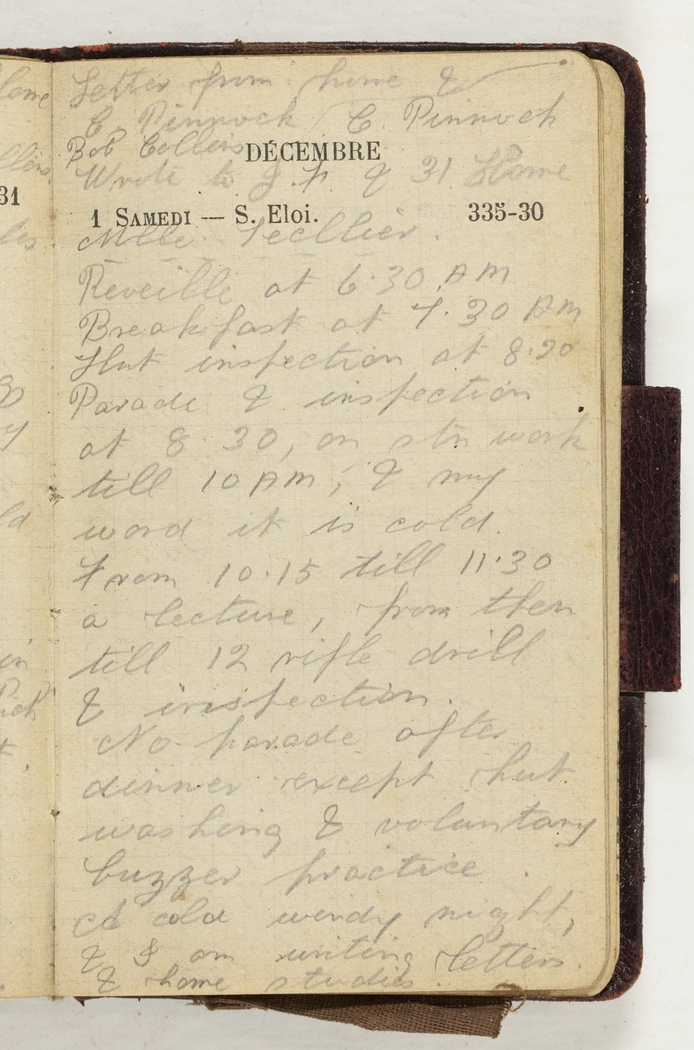 Letter from home &
C. Pinnock / C. Pinnock
Bob Collers
DÉCEMBRE
Wrote to J. P. & 31 Home
1 SAMEDI — S. Eloi. 335-30
Mlle.
Reveille at 6.30 AM
Breakfast at 7.30 AM
Hut inspection at 8.20
Parade & inspection
at 8 30, on stn work
till 10 AM, & my
word it is cold.
From 10.15 till 11.30
a lecture, from then
till 12 rifle drill
& inspection.
No parade after
dinner except hut
washing & voluntary
buzzer practice.
A cold windy night,
& I am writing letters.
& home studies.
31